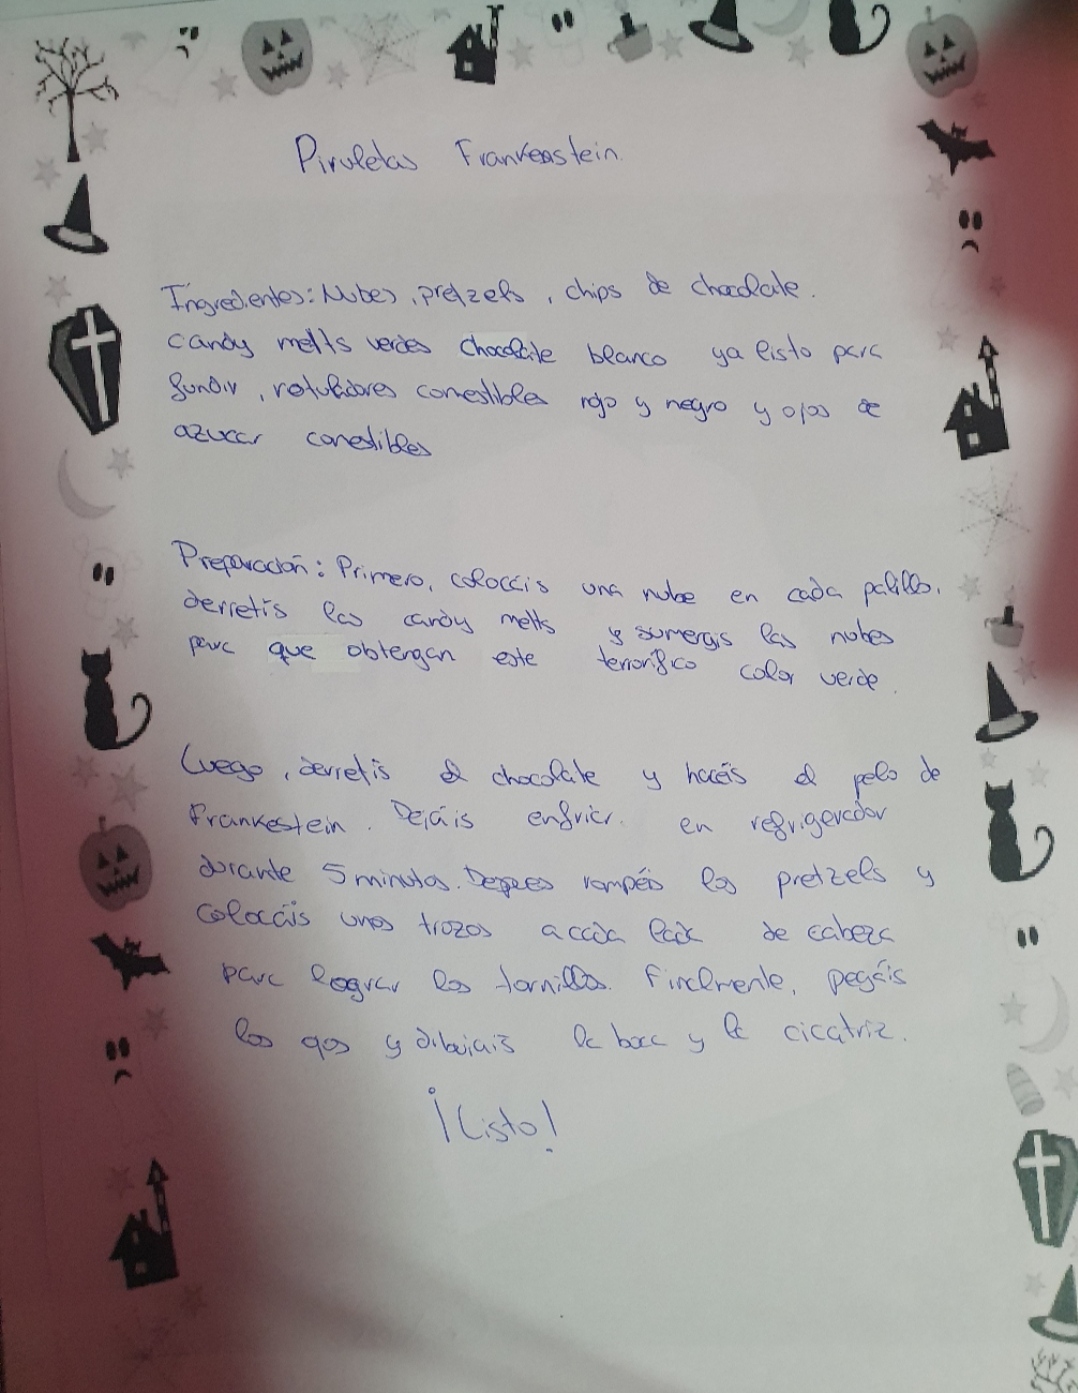 Piruletas Frankenstein.
Ingredientes: Nubes, pretzels, chips de chocolate.
candy melts verdes chocolate blanco ya listo para
fundir, rotuladores comestibles rojo y negro y ojos de
azucar comestibles
Preparación: Primero, colocáis una nube en cada palillo.
derretís las candy melts y sumergis las nubes
para que obtengan este terrorífico color verde.
Luego, derretís el chocolate y hacéis el pelo de
Frankestein. Dejáis enfriar. en refrigerador
durante 5 minutos. Despues rompéis los pretzels y
colocáis unos trozos a cada lado de cabeza
para lograr los tornillos. Finalmente, pegáis
los ojos y dibujais la boca y la cicatriz.
¡Listo!